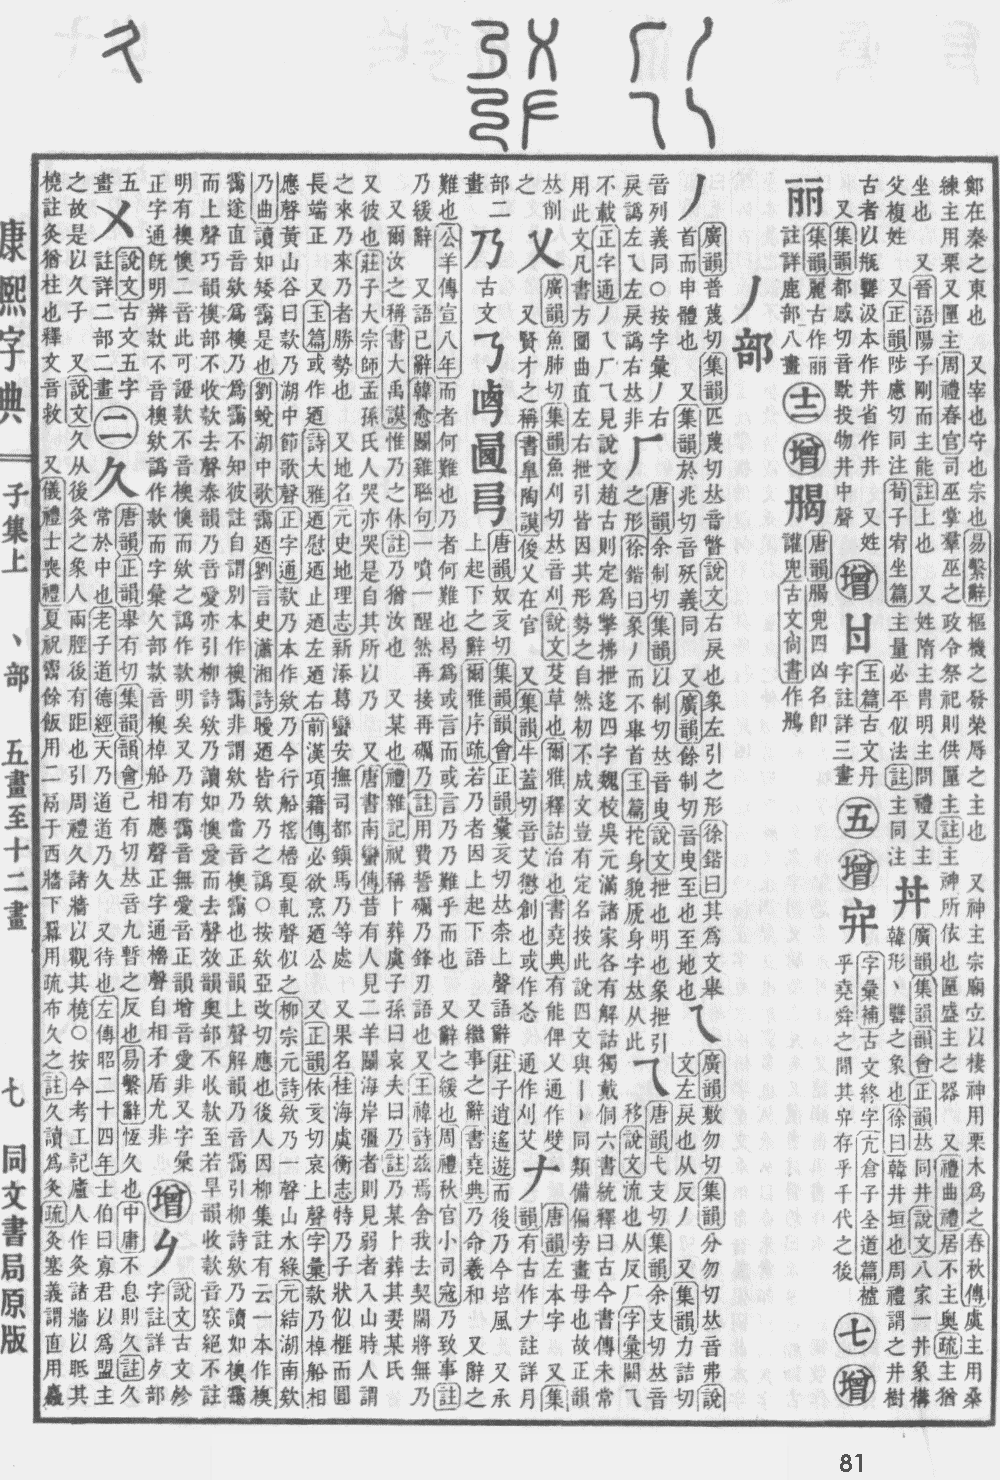 鄭在秦之東也　又宰也守也宗也易繫辭樞機之發榮辱之主也　又神主宗廟立以棲神用栗木爲之春秋傳虞主用桑
練主用栗又匰主周禮春官司巫掌羣巫之政令祭祀則供匰主註主神所依也匰盛主之器　又禮曲禮居不主奧疏主猶
坐也　又晉語陽子剛而主能註上也　又姓隋主冑明主問禮又主
父複姓　又正韻陟慮切同注荀子宥坐篇主量必平似法註主同注
丼
廣韻集韻韻會正韻𠀤同井說文八家一井象構
韓形丶罋之象也徐曰韓井垣也周禮謂之井樹
古者以甁罋汲本作丼省作井　又姓
又集韻都感切音黕投物井中聲
增
玉篇古文丹
字註詳三畫
五
增
字彙補古文終字亢倉子全道篇樝
乎堯舜之閒其存乎千代之後
七
增
丽
集韻麗古作丽
註詳鹿部八畫
十二
增
唐韻兜四凶名卽
讙兜古文尚書作鴅
丿部
丿
廣韻普蔑切集韻匹蔑切𠀤音瞥說文右戾也象左引之形徐鍇曰其爲文舉
首而申體也　又集韻於兆切音殀義同　又廣韻餘制切音曳至也至地也
乀
廣韻敷勿切集韻分勿切𠀤音弗說
文左戾也从反丿　又集韻力詰切
音列義同○按字彙丿右
戾譌左乀左戾譌右𠀤非
𠂆
唐韻余制切集韻以制切𠀤音曳說文抴也明也象抴引
之形徐鍇曰象丿而不舉首玉篇拕身貌虒身字𠀤从此
乁
唐韻弋支切集韻余支切𠀤音
移說文流也从反𠂆字彙闕
不載正字通丿乀𠂆乁見說文趙古則定爲擎拂抴迻四字魏校吳元滿諸家各有解詁獨戴侗六書統釋曰古今書傳未常
用此文凡書方圜曲直左右抴引皆因其形勢之自然初不成文豈有定名按此說四文與丨亅同類備偏旁畫母也故正韻
𠀤削之
乂
廣韻魚肺切集韻魚刈切𠀤音刈說文芟草也爾雅釋詁治也書堯典有能俾乂通作㣻　又集
又賢才之稱書臯陶謨俊乂在官　又集韻牛蓋切音艾懲創也或作忞　通作艾
𠂇
唐韻左本字
韻有古作𠂇註詳月
部二畫
乃
古文
𠄎𠧤圅弓
唐韻奴亥切集韻韻會正韻囊亥切𠀤柰上聲語辭莊子逍遙遊而後乃今培風　又承
上起下之辭爾雅序疏若乃者因上上起下語　又繼事之辭書堯典乃命羲和　又辭之
難也公羊傳宣八年而者何難也乃者何難也曷爲或言而或言乃乃難乎而也　又辭之緩也周禮秋官小司寇乃致事註
乃緩辭　又語已辭韓愈鬭雞聯句一噴一醒然再接再礪乃註用費誓礪乃鋒刃語也又王禕詩兹焉舍我去契闊將無乃
又爾汝之稱書大禹謨惟乃之休註乃猶汝也　又某也禮雜記祝稱卜葬虞子孫曰哀夫曰乃註乃某卜葬其妻某氏
又彼也莊子大宗師孟孫氏人哭亦哭是自其所以乃　又唐書南蠻傳昔有人見二羊鬭海岸彊者則見弱者入山時人謂
之來乃來乃者勝勢也　又地名元史地理志新添葛蠻安撫司都鎭馬乃等處　又果名桂海虞衡志特乃子狀似榧而圓
長端正　又玉篇或作廼詩大雅廼慰廼止廼左廼右前漢項籍傳必欲烹廼公　又正韻依亥切哀上聲字彙欸乃棹船相
應聲黃山谷曰欸乃湖中節歌聲正字通欸乃本作欸乃今行船搖櫓戛軋聲似之柳宗元詩欸乃聲山水綠元結湖南欸
乃曲讀如矮靄是也劉蛻湖中歌靄廼劉言史瀟湘詩曖廼皆欸乃之譌○按欸亞改切應也後人因柳集註有云一本作襖
靄遂直音欸爲襖乃爲靄不知彼註自謂別本作襖靄非謂欸乃當音襖靄也正韻上聲解韻乃音靄引柳詩欸乃讀如襖靄
而上聲巧韻襖部不收欸去聲泰韻乃音愛亦引柳詩欸乃讀如懊愛而去聲效韻奧部不收欸至若旱韻收款音窾絕不註
明有襖懊二音此可證欸不音襖懊而欸之譌作款明矣又乃有靄音無愛音正韻增音愛非又字彙
正字通旣明辨欸不音襖欸譌作款而字彙欠部款音襖棹船相應聲正字通櫓聲自相矛盾尤非
增
𠂈
說文古文㐱
字註詳夕部
五畫
㐅
說文古文五字
註詳二部二畫
二
久
唐韻正韻舉有切集韻韻會己有切𠀤音九暫之反也易繫辭恆久也中庸不息則久註久
常於中也老子道德經天乃道道乃久　又待也左傳昭二十四年士伯曰寡君以爲盟主
之故是以久子　又說文久从後灸之象人兩脛後有距也引周禮久諸牆以觀其橈○按今考工記廬人作灸諸牆以眡其
橈註灸猶柱也釋文音救　又儀禮士喪禮夏祝鬻餘飯用二鬲于西牆下冪用疏布久之註久讀爲灸疏灸塞義謂直用麤
康熙字典
子集上　丶部　五畫至十二畫　七
同文書局原版
81